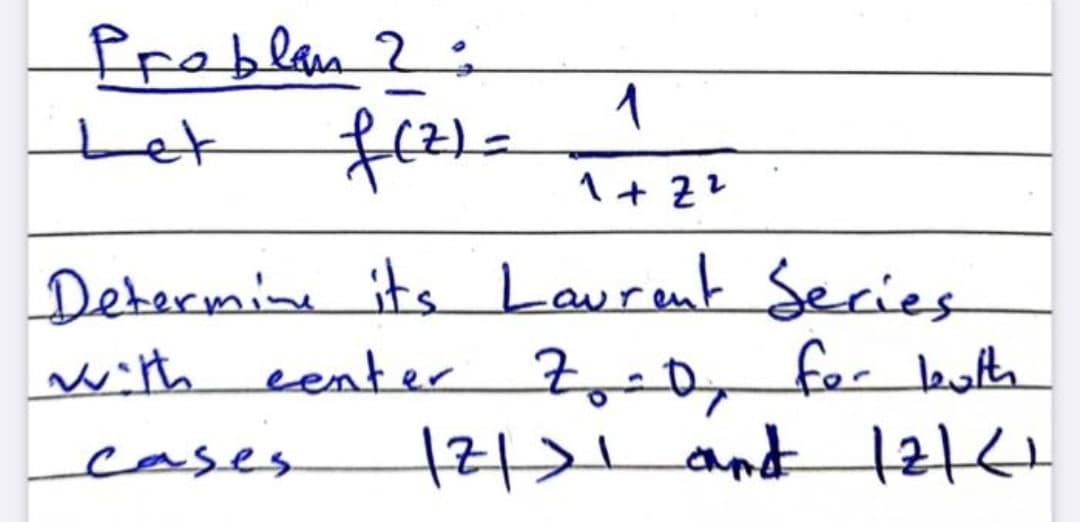 Problem 2:
Let f(z) = 1 / 1 + z²
Determine its Laurent Series
with center z₀ = 0, for both
cases |z| > 1 and |z| < 1